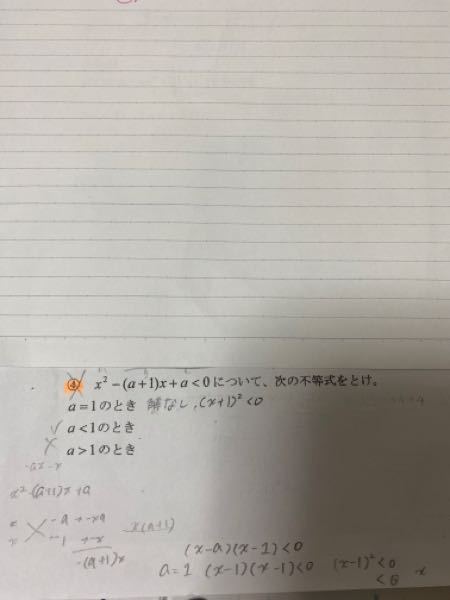 ④ x²-(a+1)x+a<0について、次の不等式をとけ。
a=1のとき 解なし、(x+1)²<0
a<1のとき
a>1のとき
-ax-x
x²-(a+1)x+a
x -a → -xa
x -1 → -x
-(a+1)x
x(a+1)
(x-a)(x-1)<0
a=1 (x-1)(x-1)<0 (x-1)²<0
x